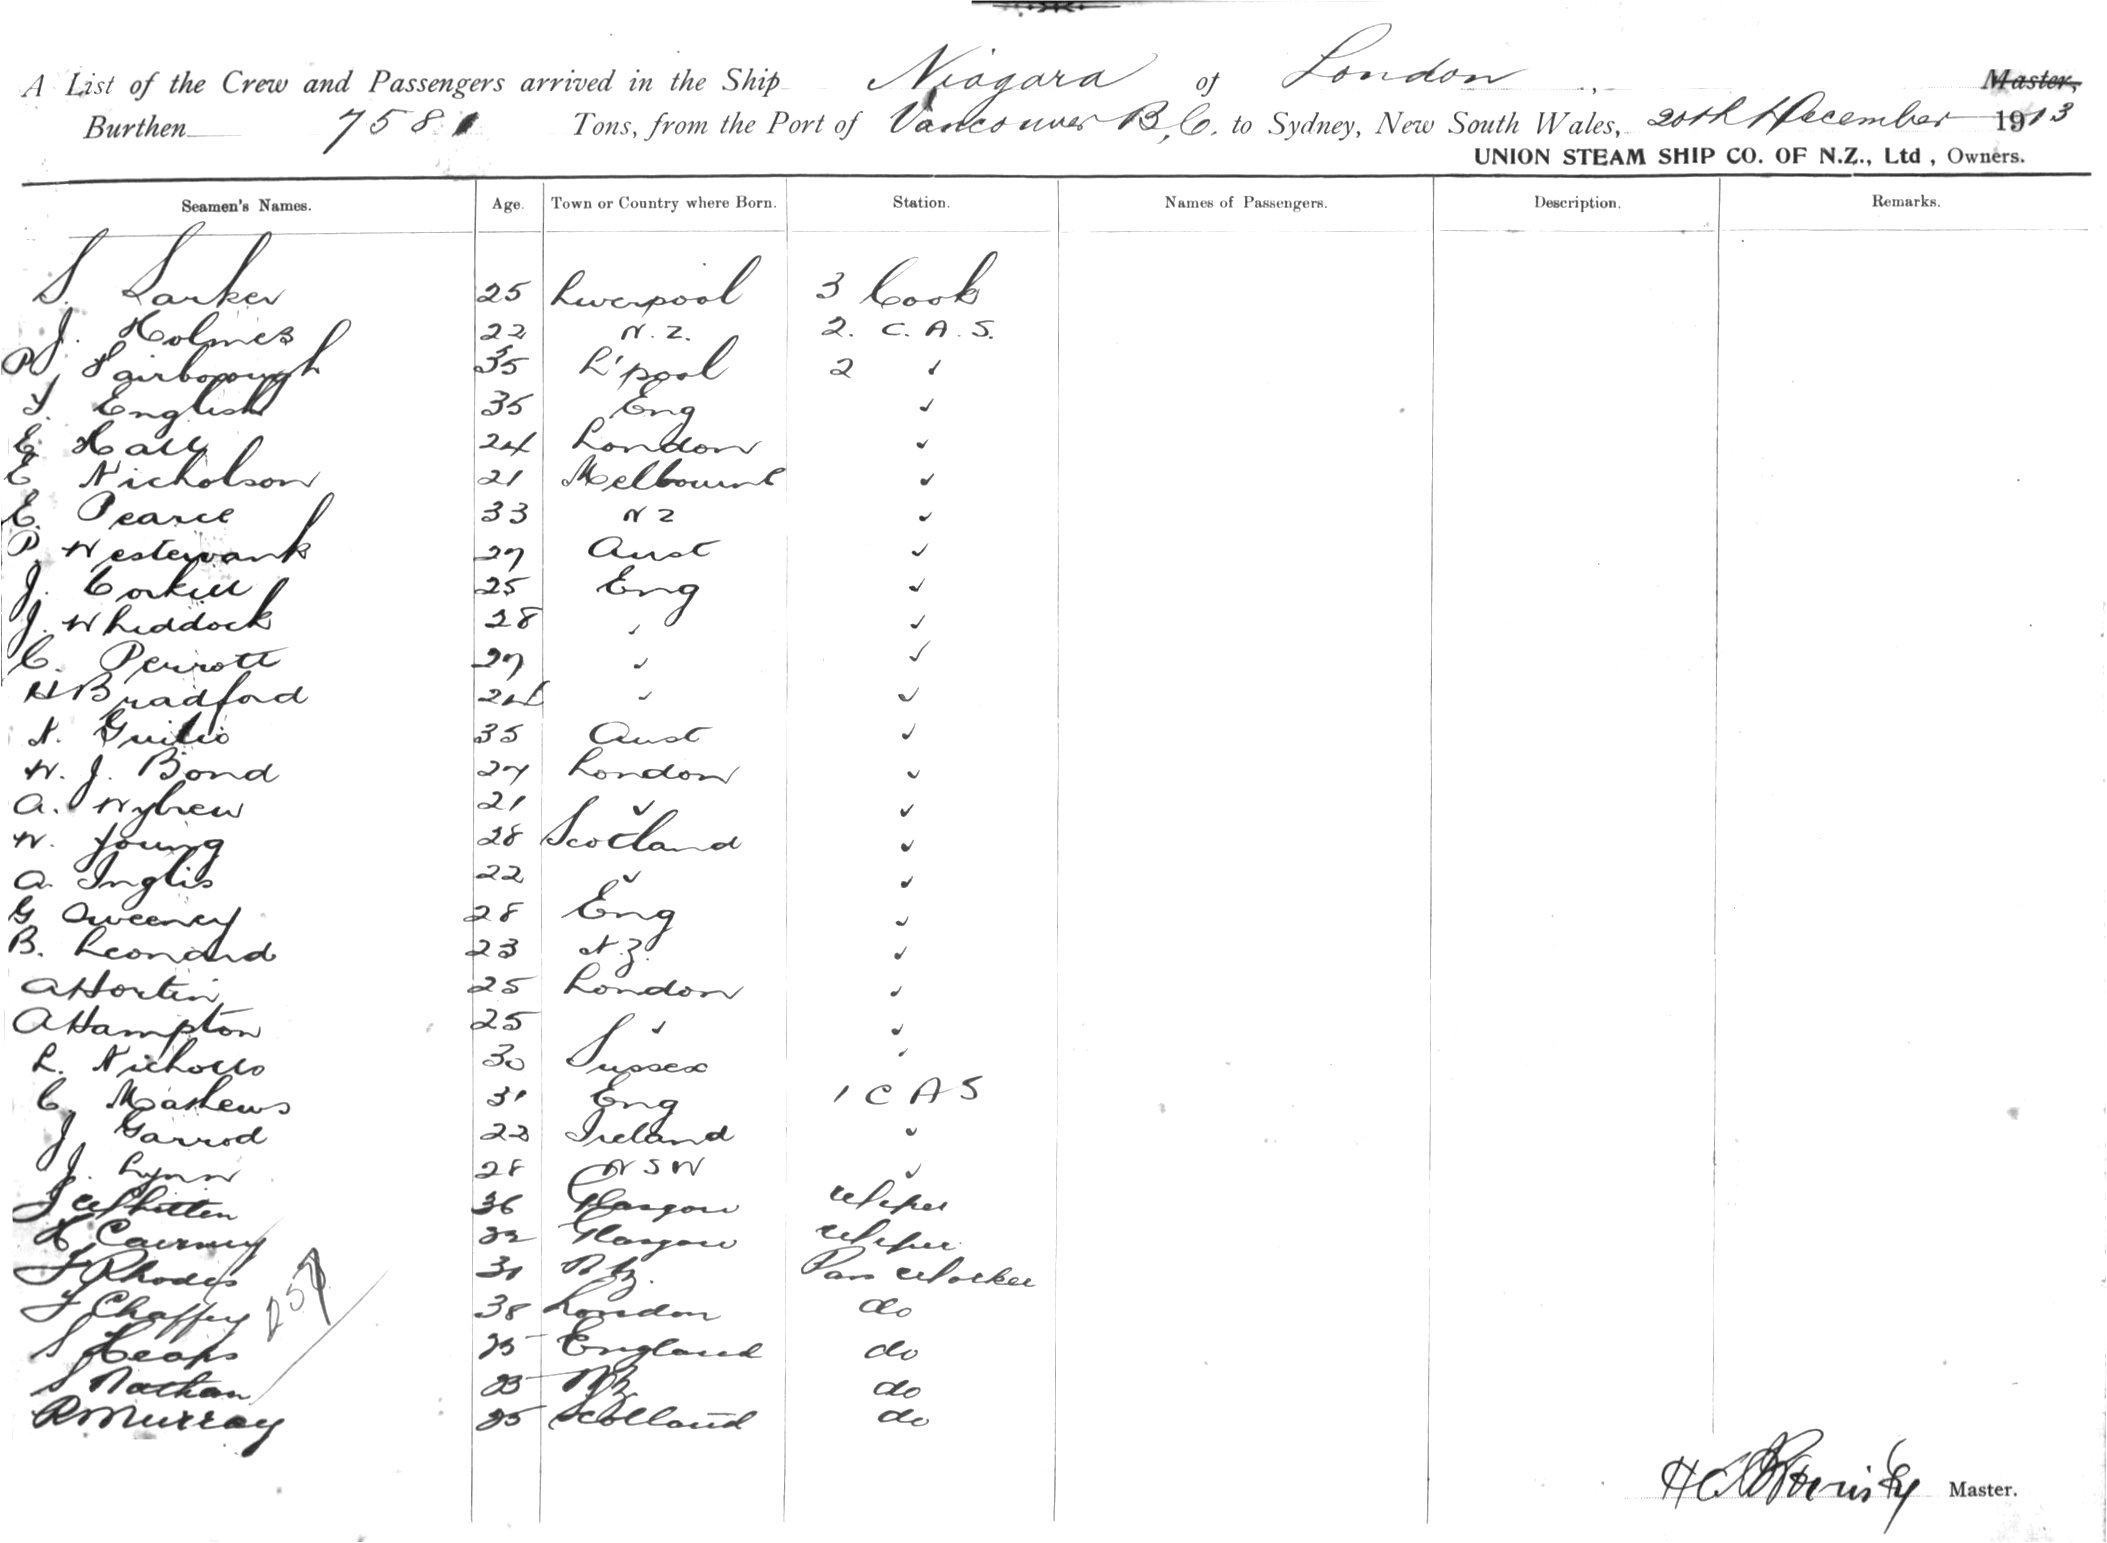 A List of the Crew and Passengers arrived in the Ship Niagara of London, Master,
Burthen 7581 Tons, from the Port of Vancouver B.C. to Sydney, New South Wales, 20th December 1913
UNION STEAM SHIP CO. OF N.Z., Ltd, Owners.
Seamen's Names. Age. Town or Country where Born. Station. Names of Passengers. Description. Remarks.
S. Larker 25 Liverpool 3 Cook
J. Holmes 22 N.Z. 2. C.A.S.
P. Fairborough 35 L'pool 2 "
T. English 35 Eng "
E. Hall 24 London "
E Nicholson 21 Melbourne "
E. Pearce 33 NZ "
P. Westerwank 27 Aust "
J. Corkill 25 Eng "
J. Whiddock 28 " "
C. Perrott 27 " "
H Bradford 24 " "
N. Guilio 35 Aust "
W. J. Bond 27 London "
A. Wybrew 21 " "
W. Young 28 Scotland "
A. Inglis 22 " "
G Sweeney 28 Eng "
B. Leonard 23 N.Z. "
A Hortin 25 London "
A Hampton 25 " "
L. Nicholls 30 Sussex "
C. Mathews 31 Eng 1 C A S
J Garrod 23 Ireland "
J. Lynn 28 N S W "
J Whitten 36 Glasgow Wiper
H Cairney Glasgow Wiper
F Rhodes 31 NZ. Pan Worker
F Chaffey 38 London do
S Heaps 25 England do
S Nathan 23 NZ do
R Murray 25 Scotland do
Master.